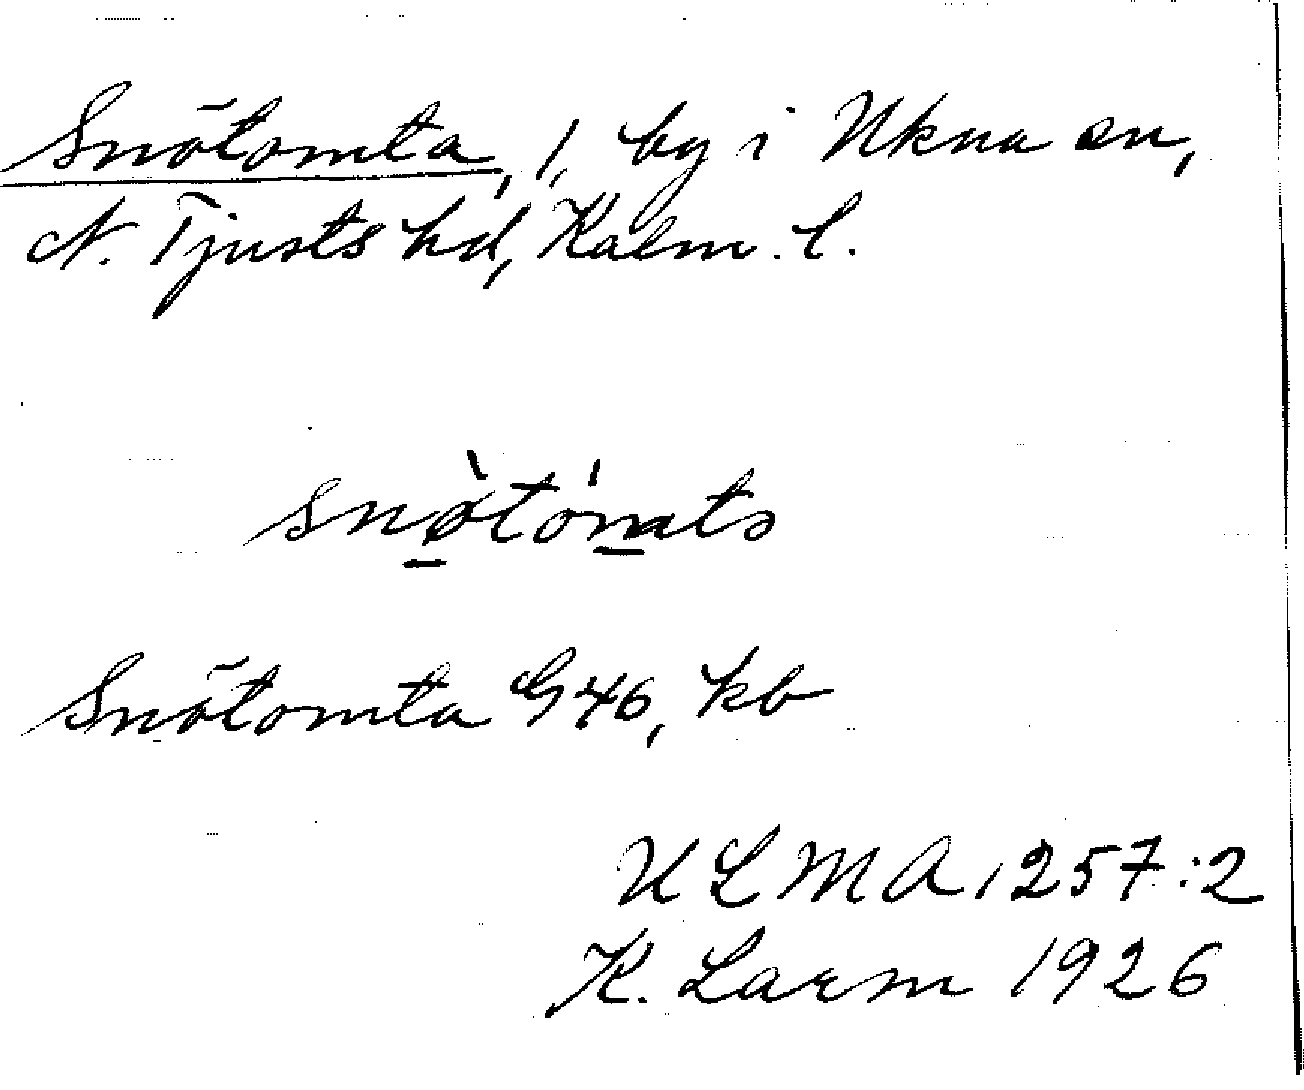 Snötomta, 1, by i Ukna sn,
N. Tjusts hd, Kalm. l.
Snötomta G46, kb
ULMA 1257:2
K. Larm 1926